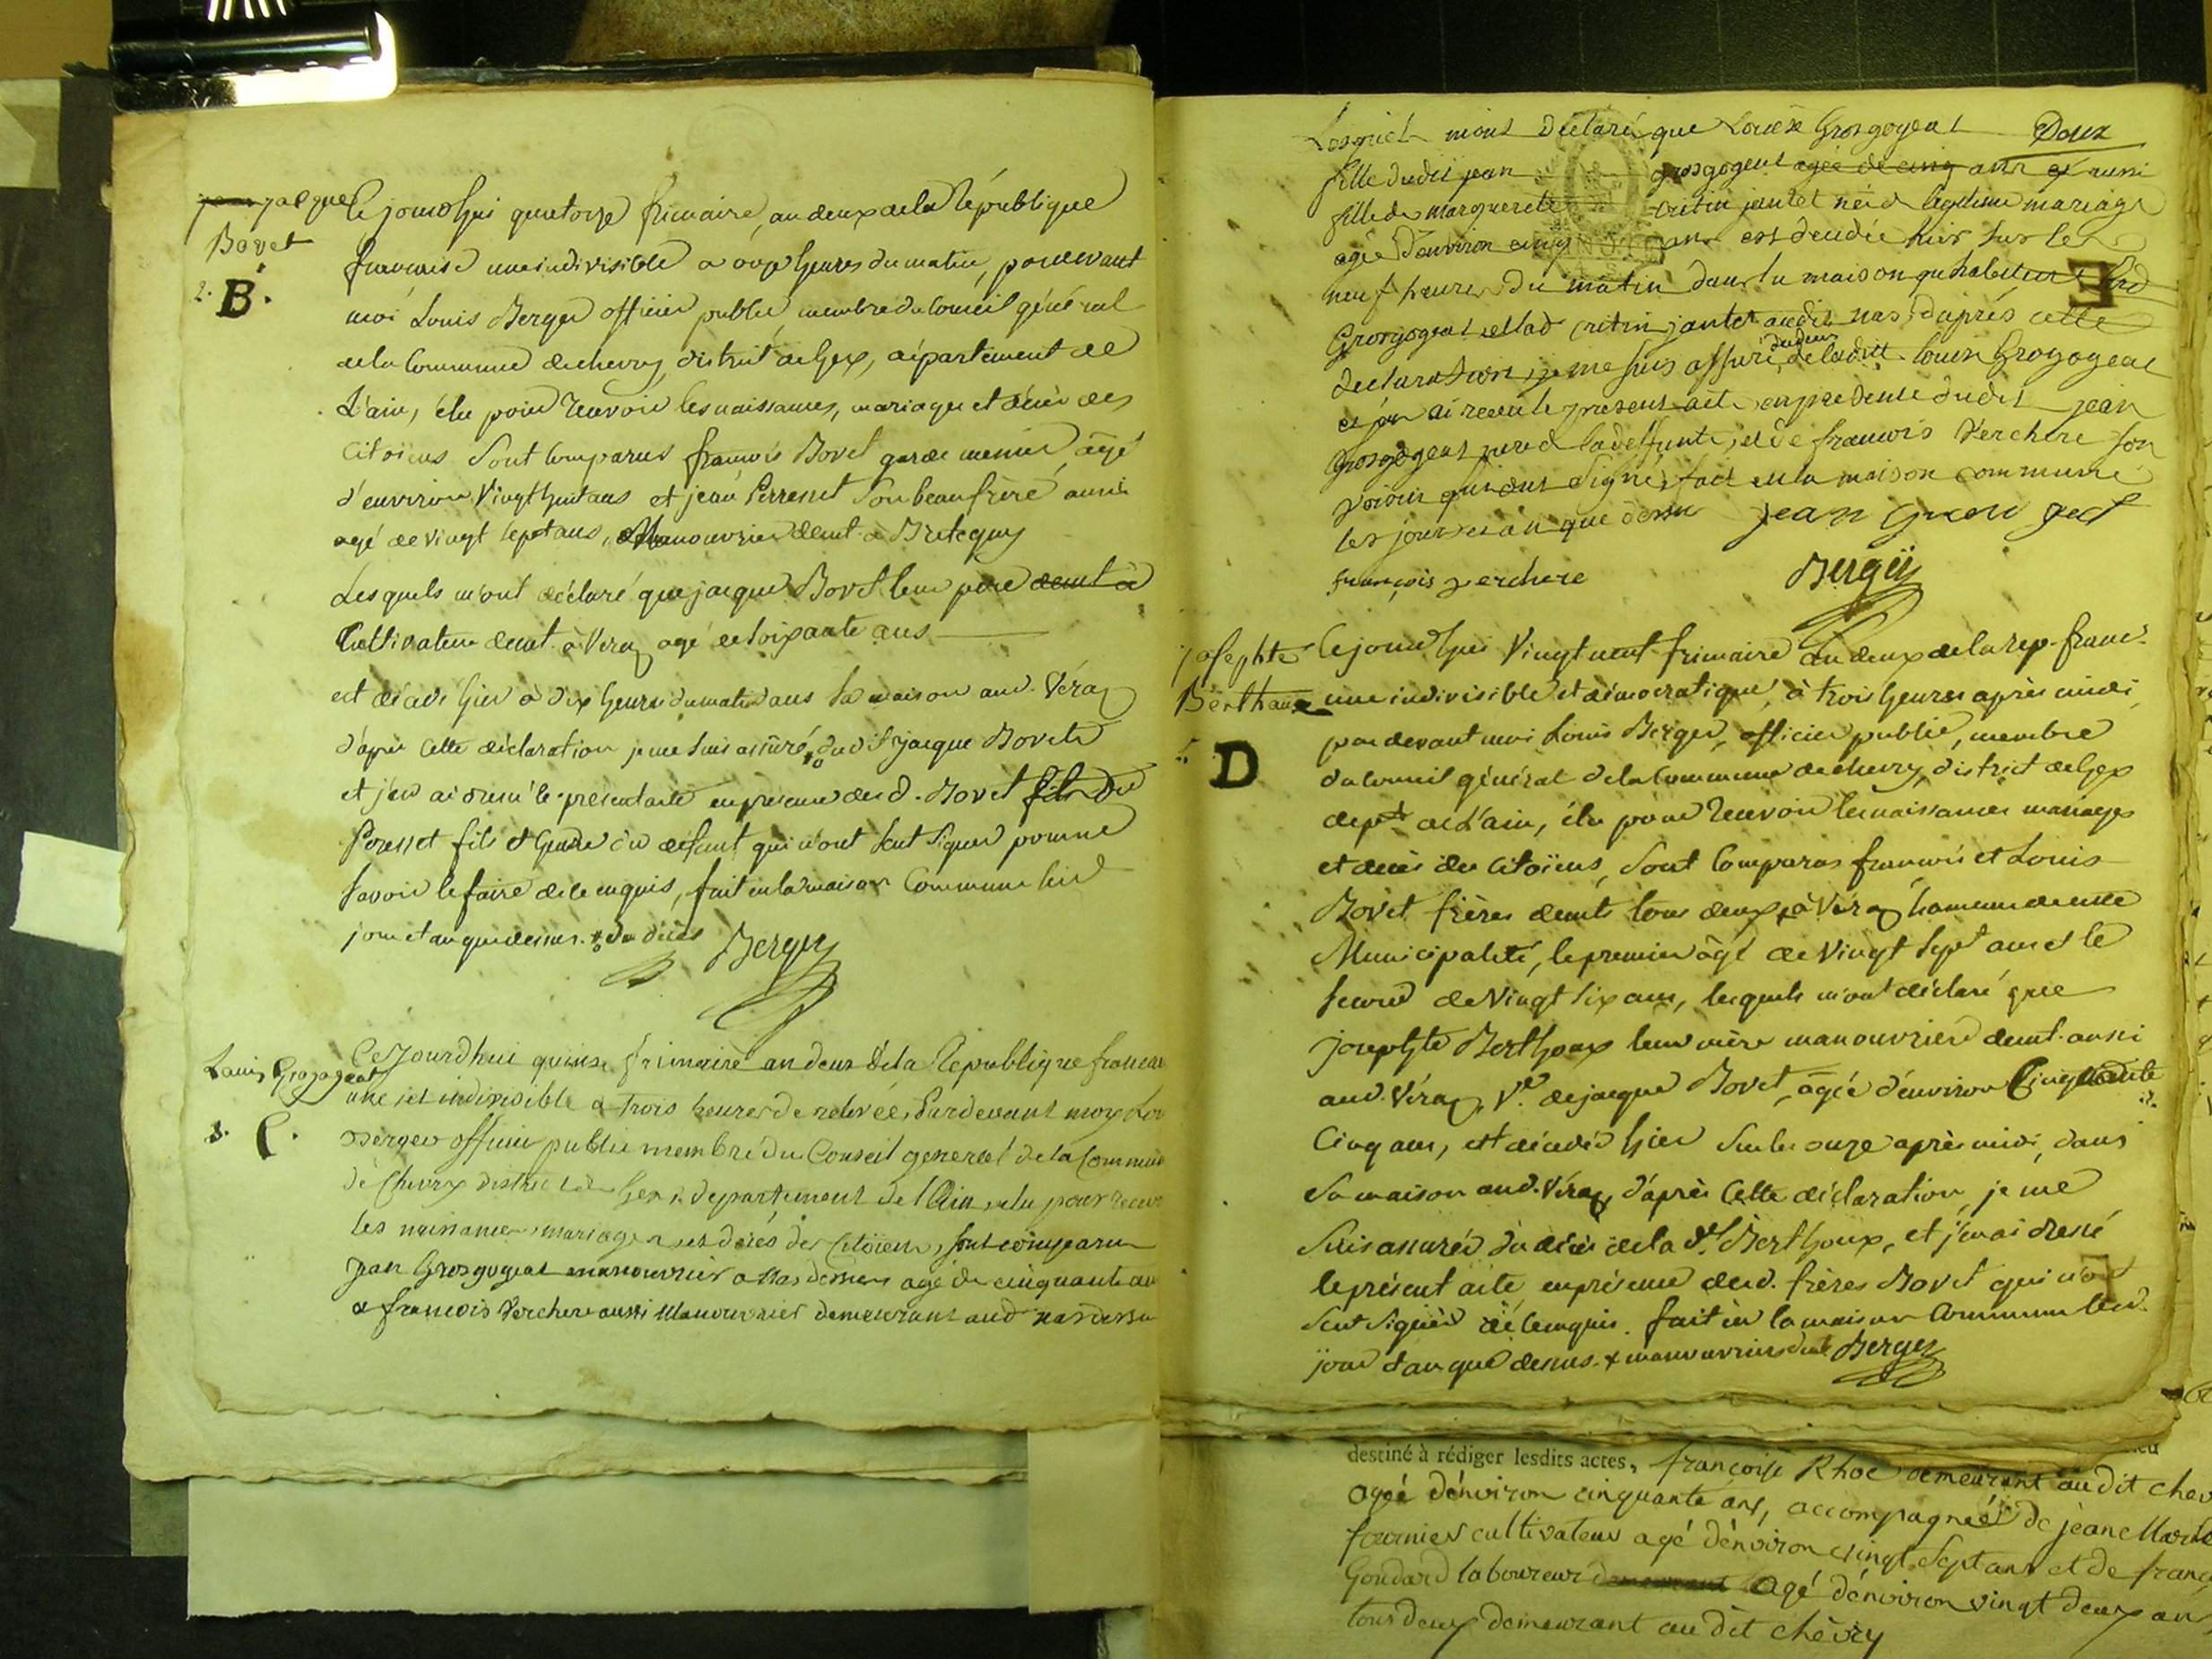 jacque
Bovet
2. B.
Ce jourdhui quatorze frimaire, an deux de la République
francaise une indivisible a onze heures du matin, pardevant
moi Louis Berger officier public membre du Conseil général
de la Commune de chevry, district de Gex, département de
L'ain, élu pour recevoir les naissances, mariages et décès des
Citoïens sont comparus francois Bovet garde meunier, agé
d'environ Vingt huit ans et jean Perresset son beaufrère aussi
agé de vingt sept ans, Manouvrier demt. à Bretegny
Lesquels m'ont déclaré que jacque Bovet leur pere demt à
Cultivateur demt. à Veraz agé de soixante ans
est décédé hier à dix heures du matin dans sa maison aud. Véraz
d'après cette déclaration je me suis assuré, dudit jacque Bovet
et j'en ai dressé le présent acte en presence desd. Bovet fils du
Peresset fils et gendre du défunt qui n'ont sceut signer pour ne
savoir le faire de ce enquis, fait en la maison Commune led.
jour et an que dessus. du décès Berger
Louis Grosgogeat
3. C.
Ce Jourdhui quinse frimaire an deux de la Republique francaise
une et indivisible a trois heures de relevée, Pardevant moy Lou
Berger officier public membre du Conseil general de la Commune
de Chevry district de Gex departement de l'Ain elu pour recev
les naissances mariages et décés des Citoiens, sont comparu
jean Grosgogeat manouvrier a Nas dessus agé de cinquante an
et francois Verchere aussi Manouvrier demeurant aud nas dessu
Lesquels mont déclaré que Louise Grosgogeat Deux
fille dudit jean Grosgogeat agée de cinq ans et aussi
fille de Marguerete critin jantet née de legitime mariage
agée d'environ cinq ans est decedée hier sur les
neuf heures du matin dans la maison qu'habitent led
Grosgogeat et lad critin jantet audit nas, d'aprés cette
declaration, je me suis assuré du deces de ladite louise Grosgogeat
et j'en ai receu le present acte en presence dudit jean
Grosgogeat pere de la deffunte, et de francois Verchere son
voisin qui ont signé, fait en la maison commune
les jour et an que dessus jean Gros get
françois verchere Berger
josephte
Berthoux
D
Ce jourdhui Vingt neuf frimaire an deux de la rep. franc.
une indivisible et démocratique, à trois heures après midi,
par devant moi Louis Berger, officier public, membre
du Conseil général de la Commune de chevry, district de Gex
dept. de L'ain, élu pour recevoir les naissances mariages
et decès des Citoïens, sont Comparus francois et Louis
Bovet frères demts tous deux à Véraz hameau de cette
Municipalité, le premier âgé de Vingt sept ans et le
second de Vingt six ans, lesquels m'ont déclaré que
josephte Berthoux leur mère manouvriere demt. aussi
aud. Véraz, Ve. de jacque Bovet, âgée d'environ Cinquante
Cinq ans, est décédée hier sur les onze après midi, dans
sa maison aud. Véraz, d'après cette déclaration, je me
suis assuré du décès de la d. Berthoux, et j'en ai dressé
le présent acte en présence desd. frères Bovet qui n'ont
sceut signer de ce enquis. fait en la maison Commune led.
jour et an que dessus. x manouvriers demt Berger
destiné à rédiger lesdits actes, françoise Rhoc demeurant audit chev
agée d'énviron cinquante ans, accompagnée de jeane Marie
fournier cultivateur agé d'énviron vingt sept ans et de franç
Goudard laboureur agé d'énviron vingt deux an
tous deux demeurant audit chèvry